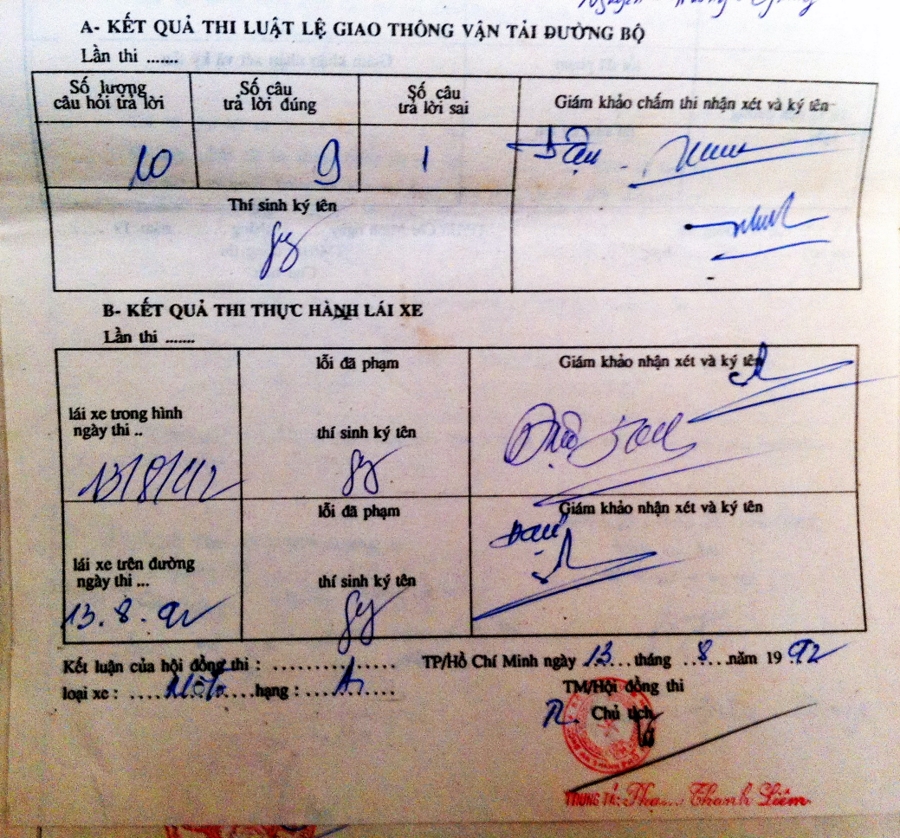 A- KẾT QUẢ THI LUẬT LỆ GIAO THÔNG VẬN TẢI ĐƯỜNG BỘ
Lần thi .......
Số lượng câu hỏi trả lời
Số câu trả lời đúng
Số câu trả lời sai
Giám khảo chấm thi nhận xét và ký tên
10
9
1
Đậu
Thí sinh ký tên
B- KẾT QUẢ THI THỰC HÀNH LÁI XE
Lần thi .......
lỗi đã phạm
Giám khảo nhận xét và ký tên
lái xe trong hình
ngày thi ..
thí sinh ký tên
13/8/92
lỗi đã phạm
Giám khảo nhận xét và ký tên
Đậu
lái xe trên đường
ngày thi ...
thí sinh ký tên
13.8.92
Kết luận của hội đồng thi : ................
TP/Hồ Chí Minh ngày 13 tháng 8 năm 1992
loại xe : Môtô hạng : A1
TM/Hội đồng thi
Chủ tịch
TRUNG TÁ: Thanh Liêm